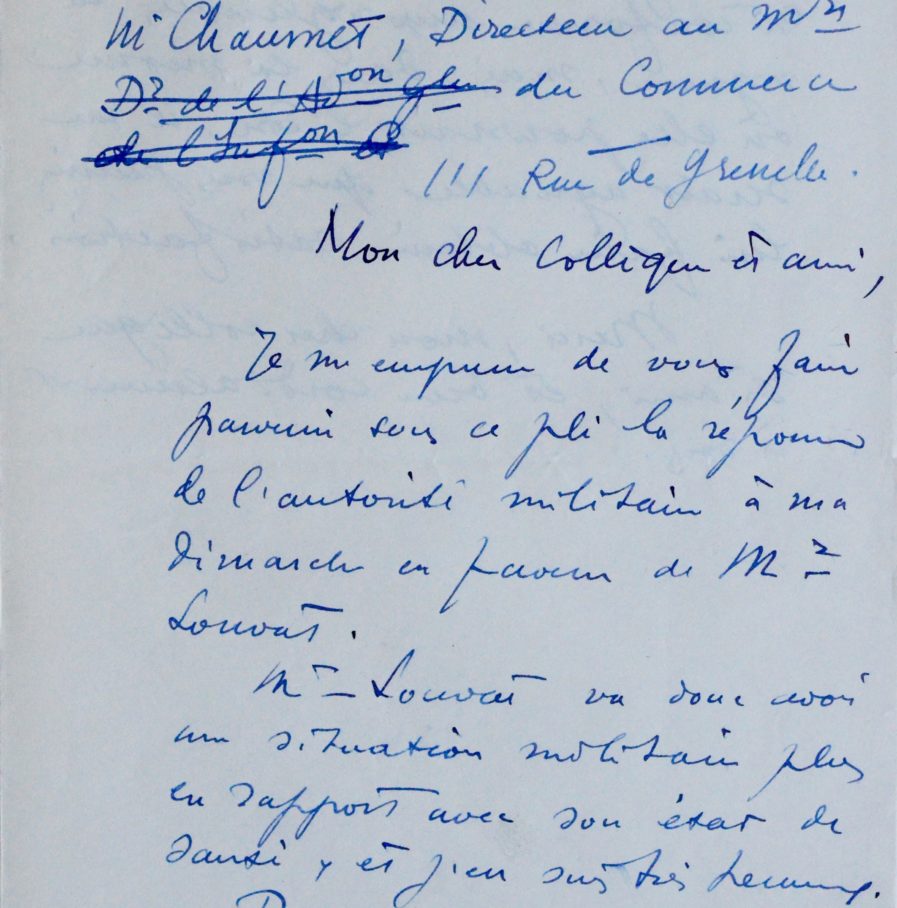 M Chaumet, Directeur au Mre
Dr de l'Adon Gle du Commerce
de l'Infon et
111 Rue de Grenelle.
Mon cher Collègue et ami,
Je m'empresse de vous faire
parvenir sous ce pli la réponse
de l'autorité militaire à ma
démarche en faveur de Mr
Louvat.
Mr Louvat va donc avoir
une situation militaire plus
en rapport avec son état de
santé, et j'en suis très heureux.